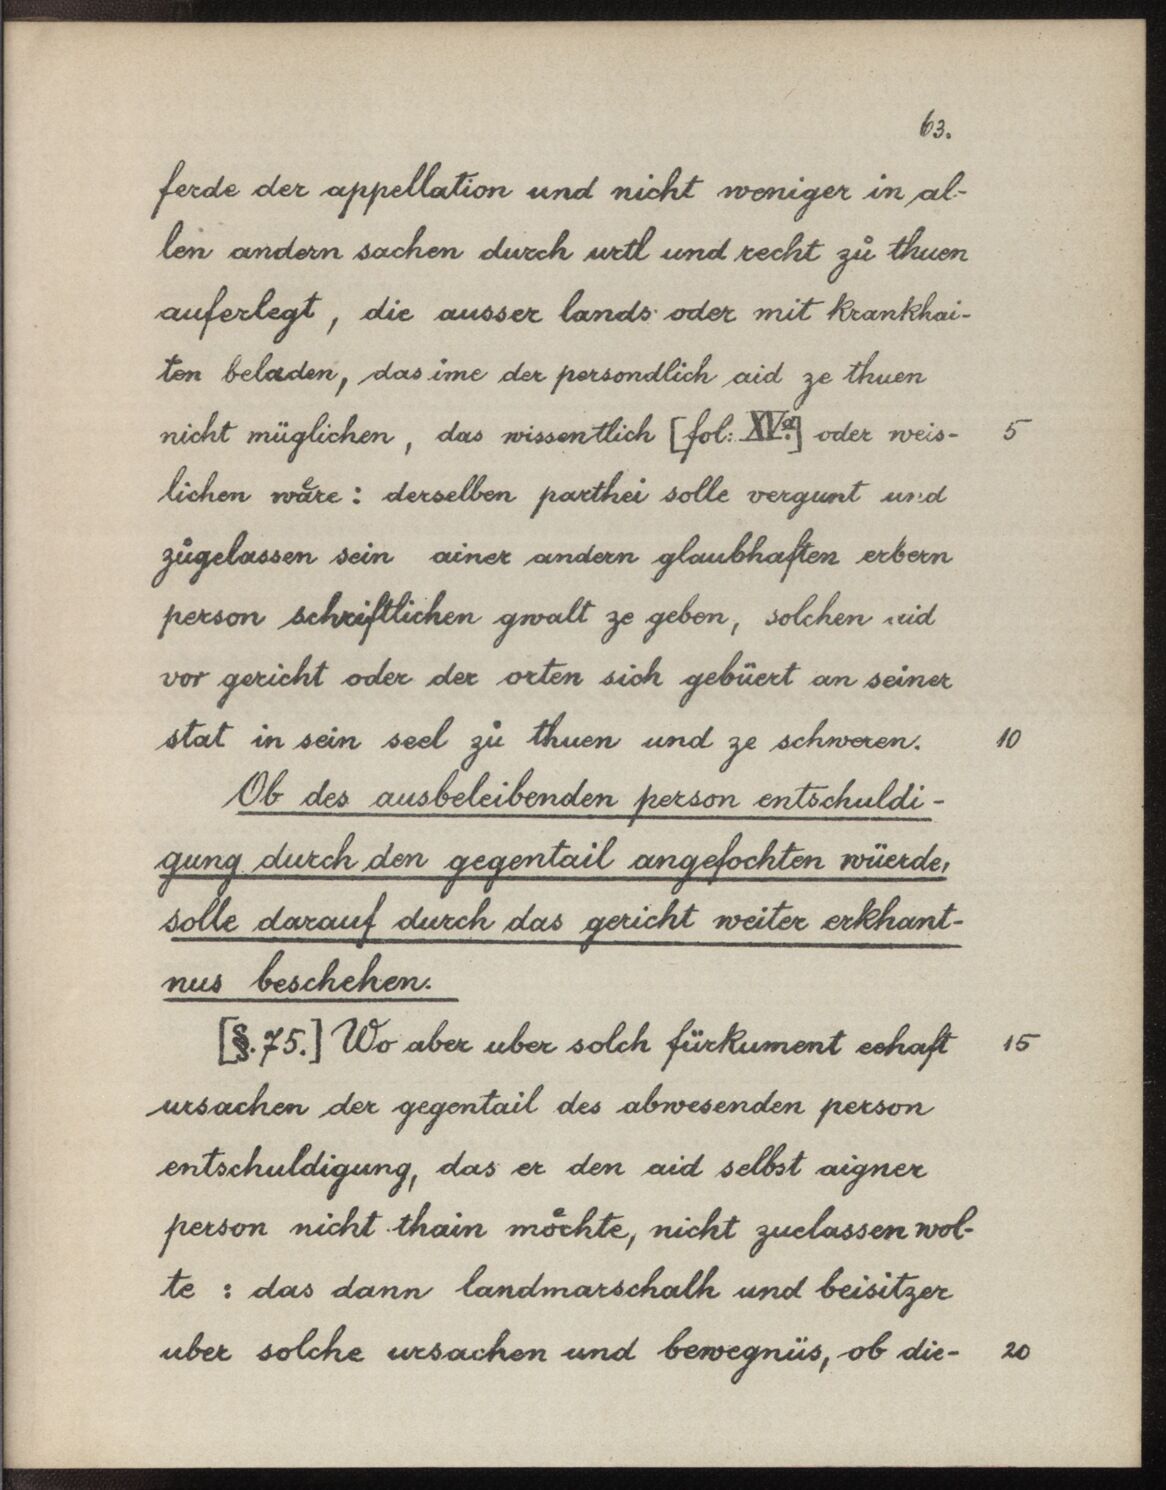 63.
ferde der appellation und nicht weniger in al-
len andern sachen durch urtl und recht zů thuen
auferlegt, die ausser lands oder mit krankhai-
ten beladen, das ime der persondlich aid ze thuen
nicht müglichen, das wissentlich [fol: XVa.] oder weis- 5
lichen waͤre: derselben parthei solle vergunt und
zůgelassen sein ainer andern glaubhaften erbern
person schriftlichen gwalt ze geben, solchen aid
vor gericht oder der orten sich gebüert an seiner
stat in sein seel zů thuen und ze schweren. 10
Ob des ausbeleibenden person entschuldi-
gung durch den gegentail angefochten wüerde,
solle darauf durch das gericht weiter erkhant-
nus beschehen.
[§. 75.] Wo aber uber solch fürkument eehaft 15
ursachen der gegentail des abwesenden person
entschuldigung, das er den aid selbst aigner
person nicht thain moͤchte, nicht zuelassen wol-
te : das dann landmarschalh und beisitzer
uber solche ursachen und bewegnüs, ob die- 20